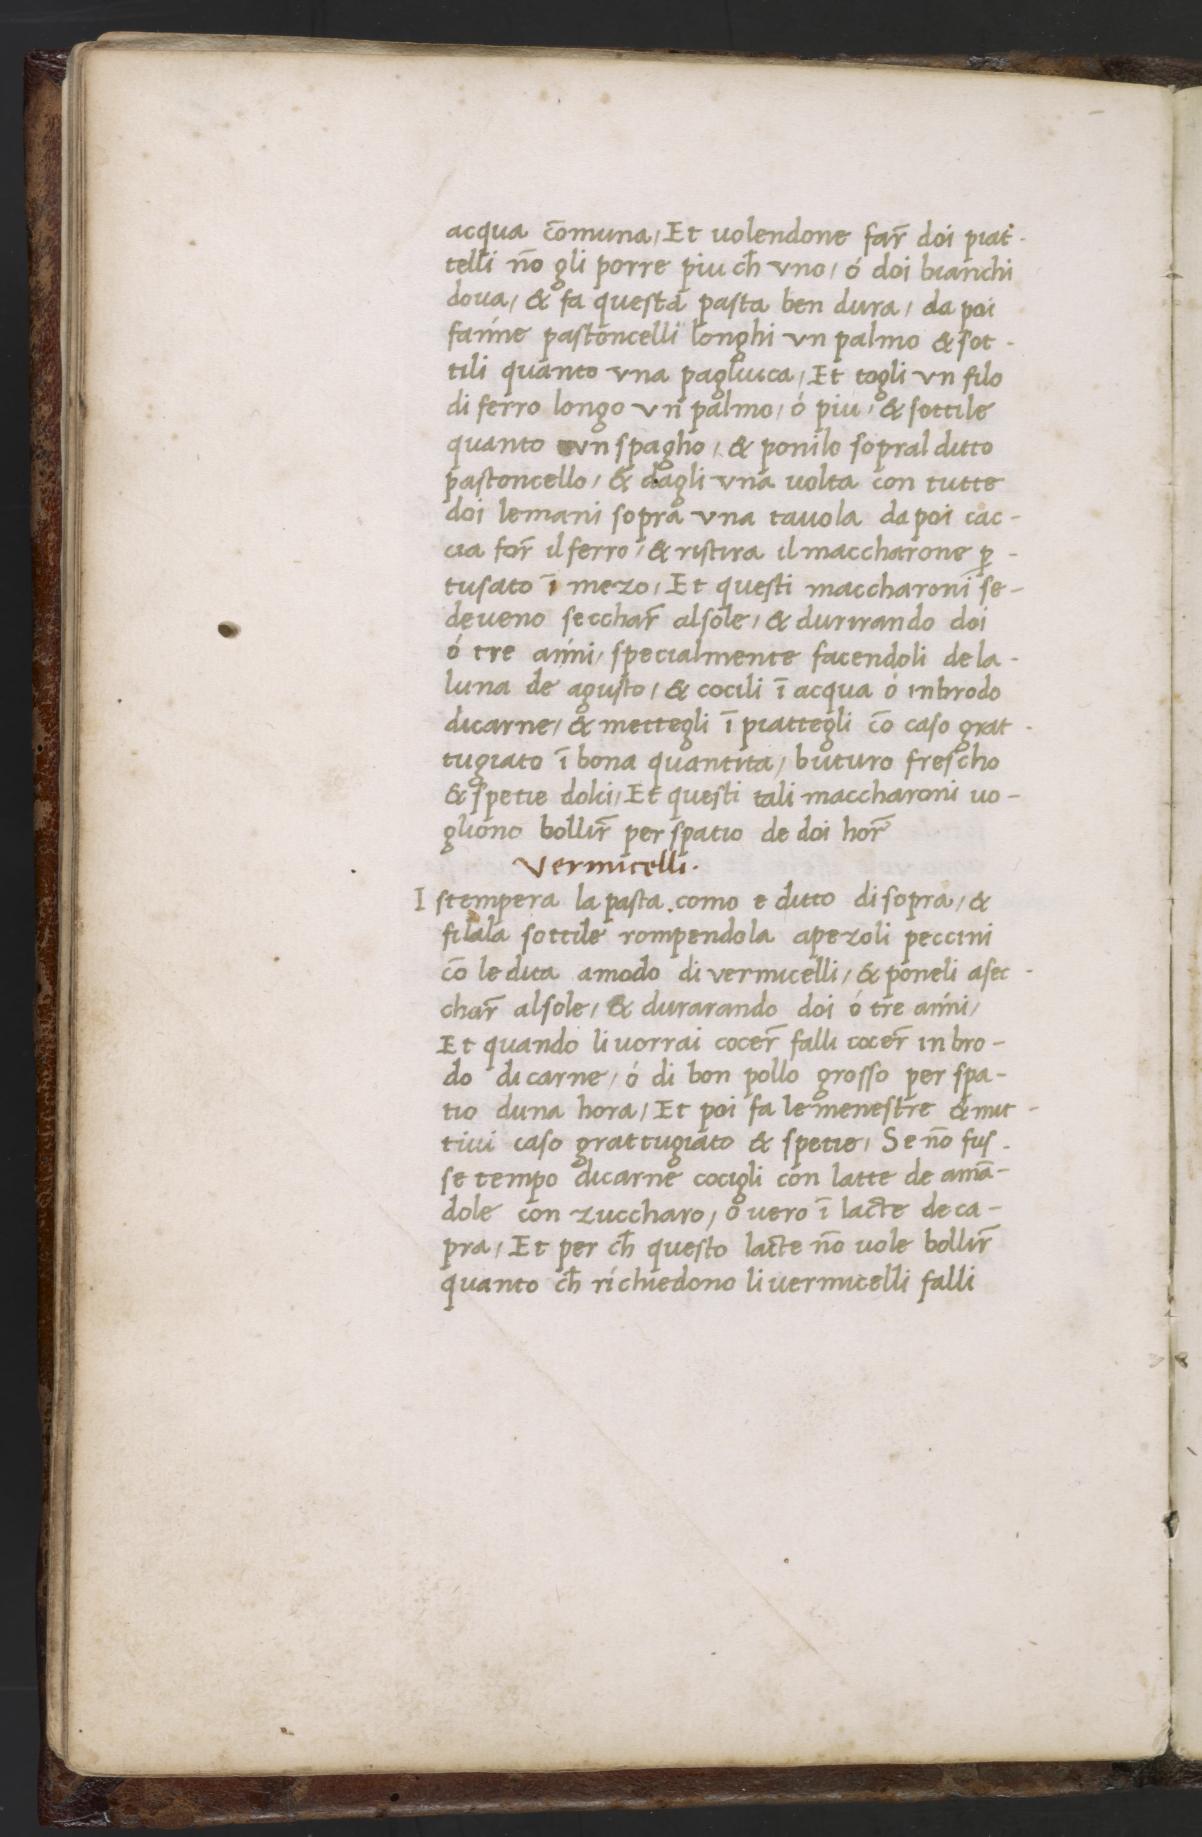 acqua cōmuna/ Et uolendone far̄ doi piat-
telli nō gli porre piu ch̄ vno/ ó doi bianchi
doua/ & fa questa pasta ben dura/ da poi
fanne pastoncelli longhi vn palmo & sot-
tili quanto vna pagliuca/ Et togli vn filo
di ferro longo vn palmo/ ó piu/ & sottile
quanto vn spagho/ & ponilo sopral ditto
pastoncello/ & dagli vna uolta con tutte
doi lemani sopra vna tauola da poi cac-
cia for̄ il ferro/ & ristira il maccharone ꝑ-
tusato ī mezo/ Et questi maccharoni se-
deueno secchar̄ alsole/ & durirando doi
ó tre anni/ specialmente facendoli de la-
luna de agusto/ & cocili ī acqua ó inbrodo
dicarne/ & mettegli ī piattegli cō caso grat-
tugiato ī bona quantita/ buturo frescho
& spetie dolci/ Et questi tali maccharoni uo-
gliono bollir̄ per spatio de doi hor̄
Vermicelli.
I stempera la pasta como e ditto di sopra/ &
filala sottile rompendola apezoli peccini
cō le dita amodo di vermicelli/ & poneli asec-
char̄ alsole/ & durarando doi ó tre anni/
Et quando li uorrai cocer̄ falli cocer̄ in bro-
do di carne/ ó di bon pollo grosso per spa-
tio duna hora/ Et poi fa le menestre & mit-
tiui caso grattugiato & spetie/ Se nō fus-
se tempo dicarne cocigli con latte de amā-
dole con zuccharo/ o vero ī lacte de ca-
pra/ Et per ch̄ questo lacte nō uole bollir̄
quanto ch̄ richiedono li uermicelli falli